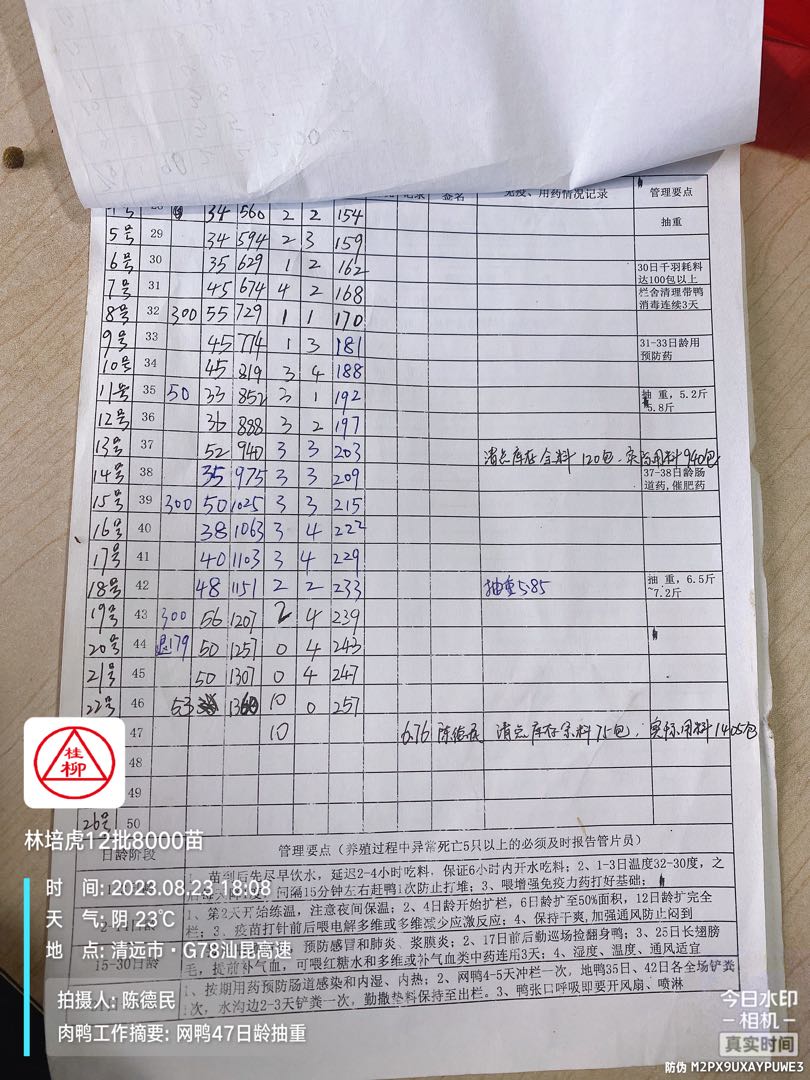 签名 免疫、用药情况记录 管理要点
28 34 560 2 2 154 抽重
5号 29 34 594 2 3 159
6号 30 35 629 1 2 162 30日千羽耗料达100包以上
7号 31 45 674 4 2 168 栏舍清理带鸭消毒连续3天
8号 32 300 55 729 1 1 170
9号 33 45 774 1 3 181 31-33日龄用预防药
10号 34 45 819 3 4 188
11号 35 50 33 852 3 1 192 抽重，5.2斤 5.8斤
12号 36 36 888 3 2 197
13号 37 52 940 3 3 203 清点库存余料120包，实际用料940包
14号 38 35 975 3 3 209 37-38日龄肠道药,催肥药
15号 39 300 50 1025 3 3 215
16号 40 38 1063 3 4 222
17号 41 40 1103 3 4 229
18号 42 48 1151 2 2 233 抽重5.85 抽重，6.5斤~7.2斤
19号 43 300 56 1207 2 4 239
20号 44 退179 50 1257 0 4 243
21号 45 50 1307 0 4 247
22号 46 53 1360 10 0 257
47 10 6.76 陈德民 清点库存余料75包，实际用料1405包
48
49
26号 50
日龄阶段 管理要点（养殖过程中异常死亡5只以上的必须及时报告管片员）
1、苗到后先尽早饮水，延迟2-4小时吃料，保证6小时内开水吃料；2、1-3日温度32-30度，之
间隔15分钟左右赶鸭1次防止打堆；3、喂增强免疫力药打好基础；
1、第2天开始练温，注意夜间保温；2、4日龄开始扩栏，6日龄扩至50%面积，12日龄扩完全
栏；3、疫苗打针前后喂电解多维或多维减少应激反应；4、保持干爽,加强通风防止闷到
15-30日龄 预防感冒和肺炎、浆膜炎；2、17日前后勤巡场捡翻身鸭；3、25日长翅膀
毛，提前补气血，可喂红糖水和多维或补气血类中药连用3天；4、湿度、温度、通风适宜
1、按期用药预防肠道感染和内湿、内热；2、网鸭4-5天冲栏一次，地鸭35日、42日各全场铲粪
次，水沟边2-3天铲粪一次，勤撒垫料保持至出栏。3、鸭张口呼吸即要开风扇、喷淋
桂柳
林培虎12批8000苗
时 间: 2023.08.23 18:08
天 气: 阴 23℃
地 点: 清远市·G78汕昆高速
拍摄人: 陈德民
肉鸭工作摘要: 网鸭47日龄抽重
今日水印
相机
真实时间
防伪 M2PX9UXAYPUWE3